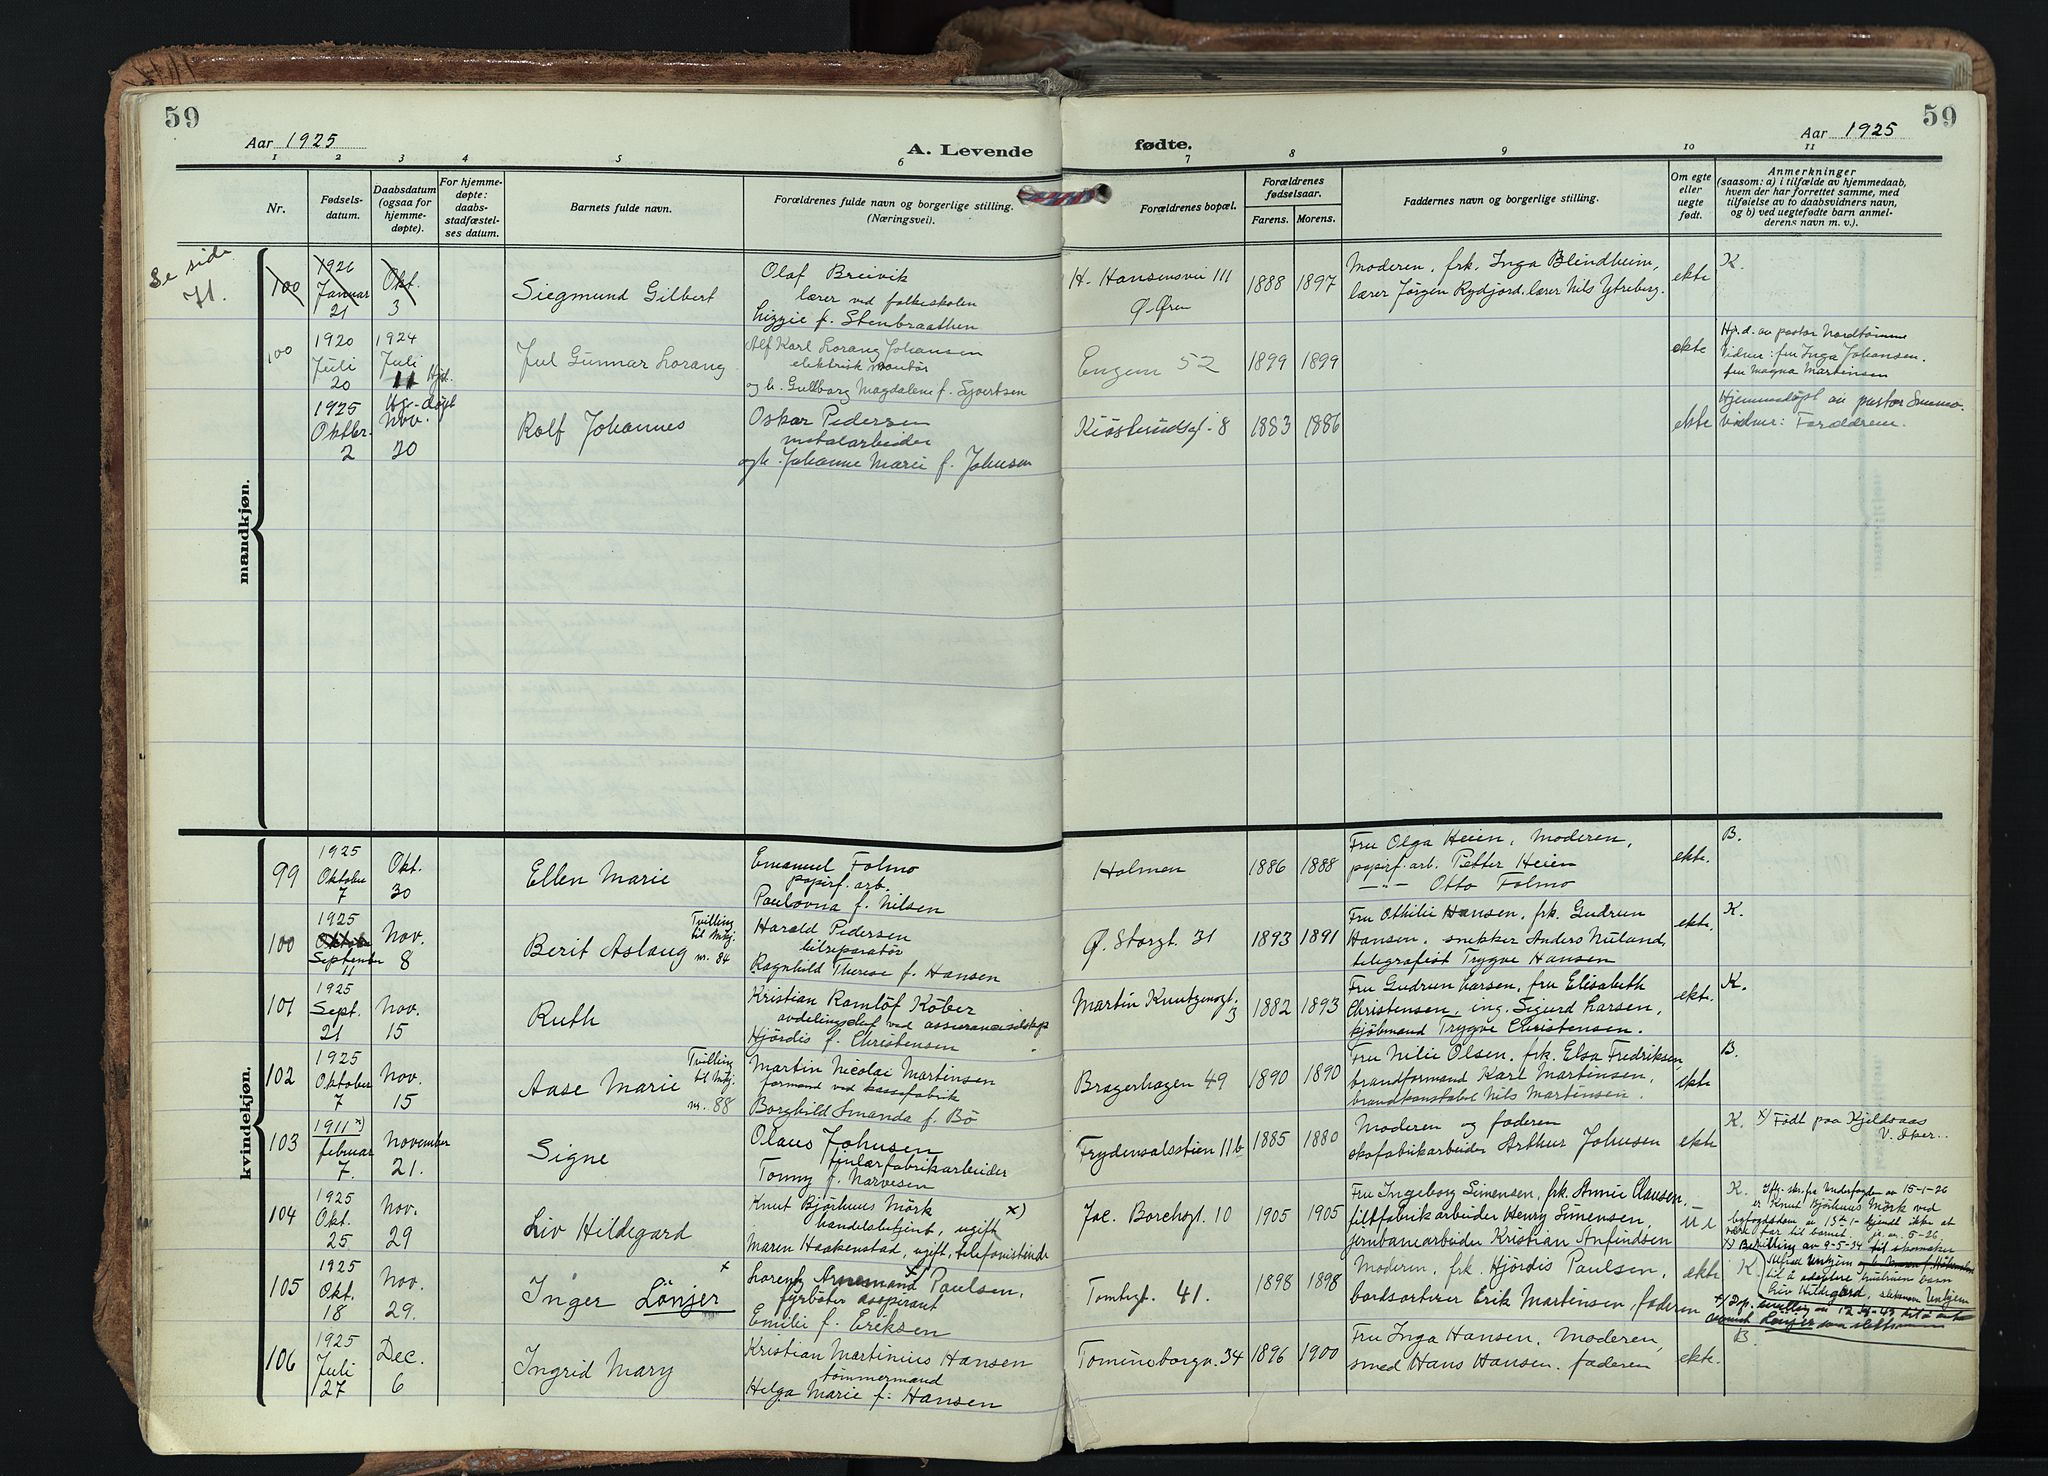 59
59
Aar 1925
A. Levende
fødte.
Aar 1925
1 2 3 4 5 6 7 8 9 10 11
Nr.
Fødsels-
datum.
Daabsdatum
(ogsaa for
hjemme-
døpte).
For hjemme-
døpte:
daabs-
stadfæstel-
ses datum.
Barnets fulde navn.
Forældrenes fulde navn og borgerlige stilling.
(Næringsvei).
Forældrenes bopæl.
Forældrenes
fødselsaar.
Farens. Morens.
Faddernes navn og borgerlige stilling.
Om egte
eller
uegte
født.
Anmerkninger
(saasom: a) i tilfælde av hjemmedaab,
hvem der har forrettet samme, med
tilføielse av to daabsvidners navn,
og b) ved uegtefødte barn anmel-
derens navn m. v.).
mandkjøn.
Se side
71.
100
1926
Januar
21
Okt.
3
Siegmund Gilbert
Olaf Breivik
lærer ved folkeskolen
Lizzie f. Stenbraathen
H. Hansensvei 111
Ø. Øren
1888 1897
Moderen, frk. Inga Blindheim,
lærer Jørgen Rydjord, lærer Nils Ytreberg.
ekte
K.
100
1920
Juli
20
1924
Juli
11 Hjd.
Jul Gunnar Lorang
Alf Karl Lorang Johansen
elektrisk montør
og h. Gullborg Magdalene f. Sjvertsen
Engene 52
1899 1899
ekte
Hj.d. av pastor Nordtømme
Vidner: fru Inga Johansen.
fru Magna Martinsen
1925
Oktbr.
2
Hj.-døpt
Nov.
20
Rolf Johannes
Oskar Pedersen
metalarbeider
og h. Johanne Marie f. Johnsen
Kiøsterudsgt. 8
1883 1886
ekte
Hjemmedøpt av pastor
vidner: Forældrene.
kvindekjøn.
99
1925
Oktober
7
Okt.
30
Ellen Marie
Emanuel Folmo
papirf. arb.
Paulovna f. Nilsen
Holmen
1886 1888
Fru Olga Heien, Moderen,
papirf. arb. Petter Heien
—"— Otto Folmo
ekte.
B.
100
1925
Oktober
September
11
Nov.
8
Berit Aslaug
Tvilling
til Mkj.
nr. 84
Harald Pedersen
bilreparatør
Ragnhild Therese f. Hansen
Ø. Storgt. 31
1893 1891
Fru Othilie Hansen, frk. Gudrun
Hansen, snekker Anders Nuland,
telegrafist Trygve Hansen
ekte.
K.
101
1925
Sept.
21
Nov.
15
Ruth
Kristian Romløf Køber
avdelingschef ved assuranceselskap
Hjørdis f. Christensen
Martin Knutzensgt.
3
1882 1893
Fru Gudrun Larsen, fru Elisabeth
Christensen, ing. Sigurd Larsen,
kjøbmand Trygve Christensen.
ekte.
K.
102
1925
Oktober
7
Nov.
15
Aase Marie
Tvilling
til Mkj.
nr. 88
Martin Nicolai Martinsen
formand ved kassefabrik
Borghild Smanda f. Bö
Bragerhagen 49
1890 1890
Fru Nilie Olsen, frk. Elsa Fredriksen,
brandformand Karl Martinsen,
brandkonstabel Nils Martinsen.
ekte
B.
103
1911 x)
februar
7.
November
21.
Signe
Olaus Johnsen
finlærfabrikarbeider
Tonny f. Narvesen
Frydendalsstien 11b
1885 1880
Moderen og faderen
skofabrikarbeider Arthur Johnsen
ekte
K. x) Født paa Kjeldsaas
V. Aker.
104
1925
Okt.
25
Nov.
29
Liv Hildegard
Knut Bjørhuus Mörk x)
handelsbetjent, ugift
Maren Haakenstad, ugift, telefonistinde
Jac. Borchsgt. 10
1905 1905
Fru Ingeborg Simensen, frk. Annie Clausen,
filtfabrikarbeider Henry Simensen,
jernbanearbeider Kristian Anfindsen
u e
K. Iflg. skr. fra Underfogden av 15-1-26
er Knut Bjørhuus Mörk ved
byfogddom av 13de 1- kjendt ikke at
være far til barnet. jr. nr. 5-26.
x) Bevilling av 9-5-34 til skomaker
Alfred Unhjem
til å adoptere hustruens barn
Liv Hildegard, slektsnavn Unhjem
105
1925
Okt.
18
Nov.
29.
Inger Lönjer x
Lorentz Arnemand x) Paulsen,
fyrbøter aspirant
Emilie f. Eriksen
Tomtegt. 41.
1898 1898
Moderen, frk. Hjördis Paulsen,
bordsorterer Erik Martinsen, faderen
ekte
K.
106
1925
Juli
27
Dec.
6
Ingrid Mary
Kristian Martinius Hansen
tømmermand
Helga Marie f. Hansen
Tomineborgv. 34
1896 1900
Fru Inga Hansen, Moderen,
smed Hans Hansen, faderen
ekte.
B.